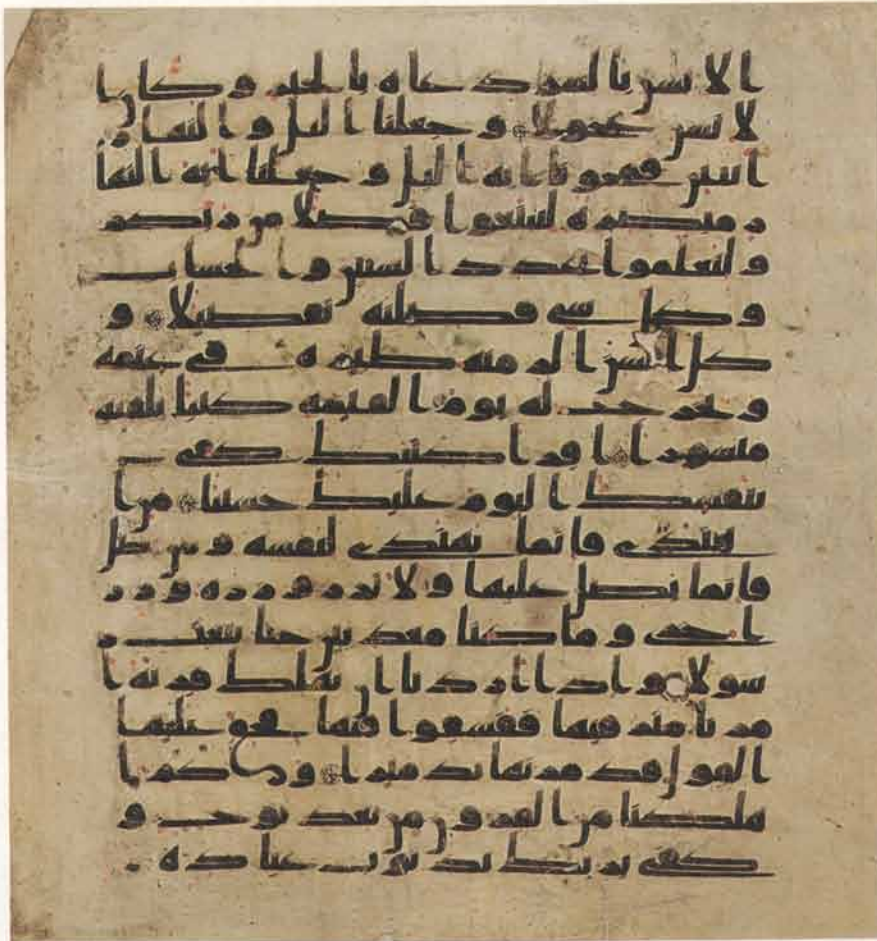 ا لانسن بالشر دعاه بالخير وكان ا
لانسن عجولا وجعلنا اليل والنهار
ايتين فمحونا ايه اليل وجعلنا ايه النها
ر مبصره لتبتغوا فضلا من ربكم
ولتعلموا عدد السنين والحساب
وكل شي فصلنه تفصيلا و
كل انسن الزمنه طيره في عنقه
ونخرج له يوم القيمه كتبا يلقيه
منشورا اقرا كتبك كفى
بنفسك اليوم عليك حسيبا من ا
هتدى فانما يهتدى لنفسه ومن ضل
فانما يضل عليها ولا تزر وزره وزر
اخرى وما كنا معذبين حتا نبعث ر
سولا واذا اردنا ان نهلك قريه ا
مرنا مترفيها ففسقوا فيها فحق عليها
القول فدمرنها تدميرا وكم ا
هلكنا من القرون من بعد نوح و
كفى بربك بذنوب عباده